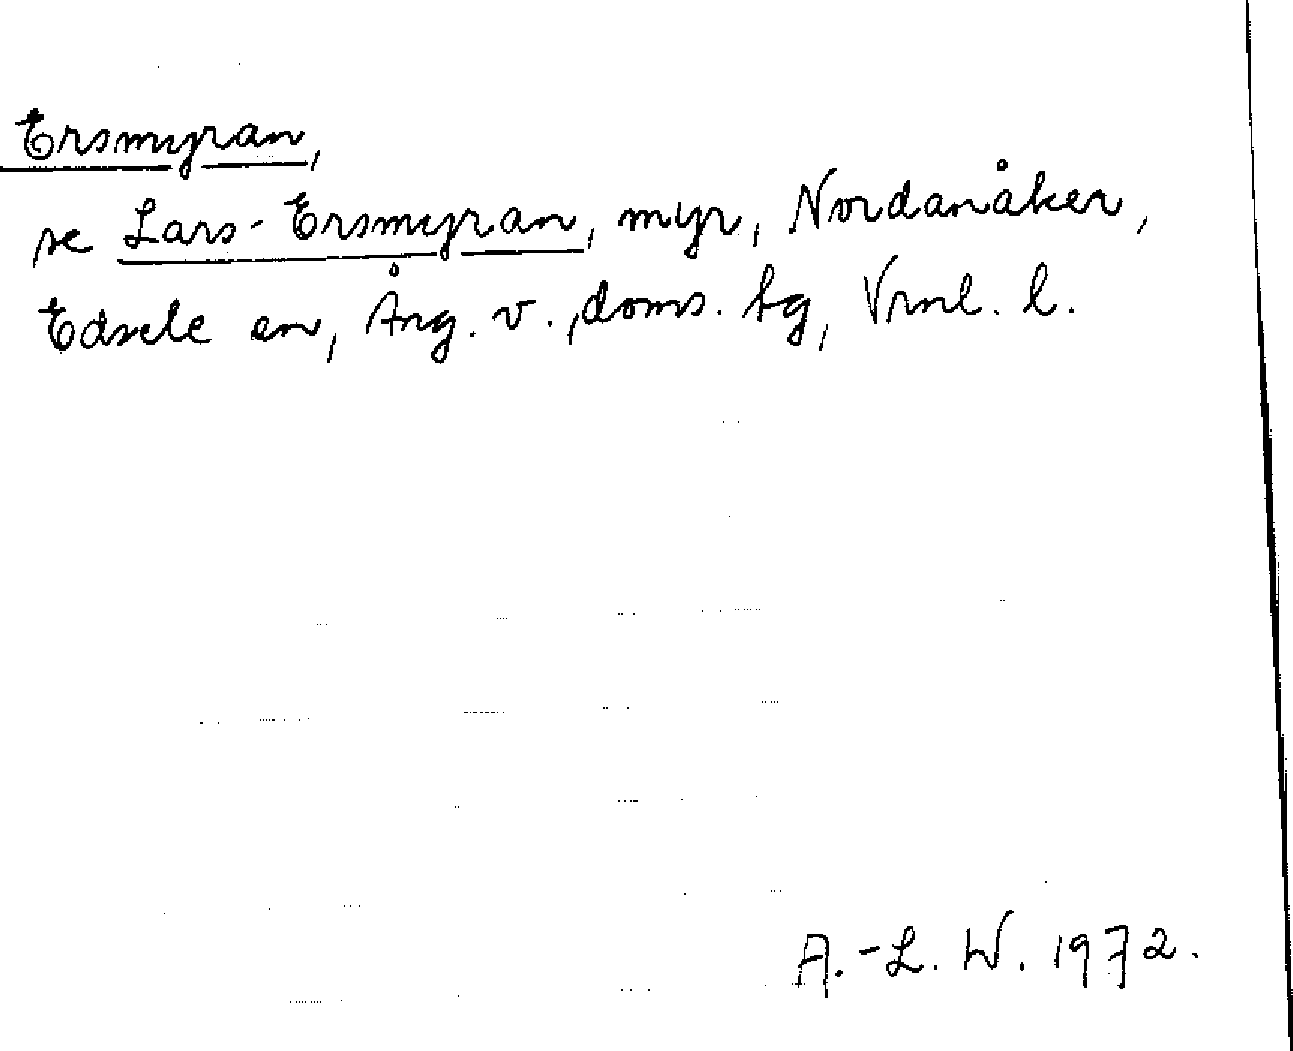 Ersmyran,
se Lars-Ersmyran, myr, Nordanåker,
Edsele sn, Ång. v., doms. tg, Vrnl. l.
A.-L. W. 1972.